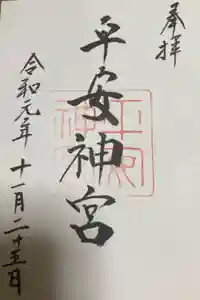 奉拝
平安神宮
令和元年十一月二十五日